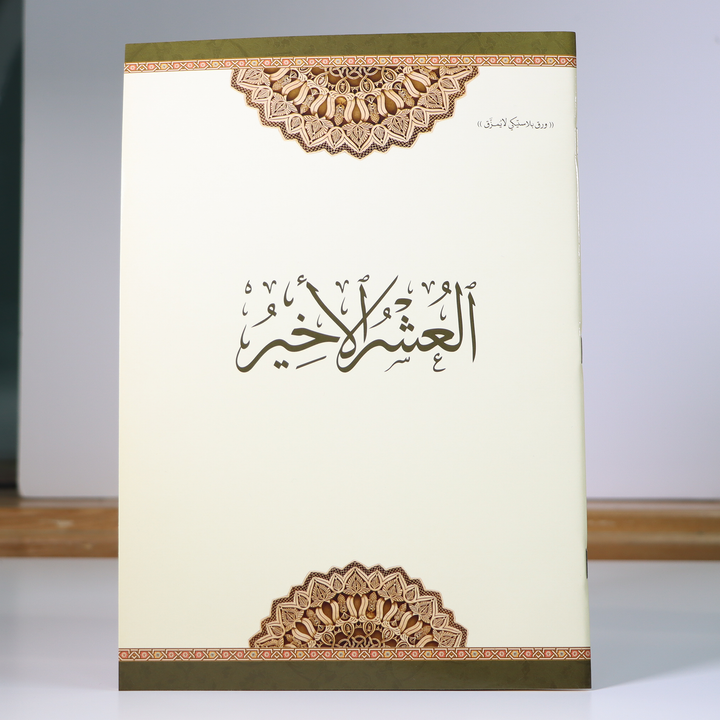 (( ورق بلاستيكي لا يمزَّق ))
العُشْرُ الأَخِيرُ